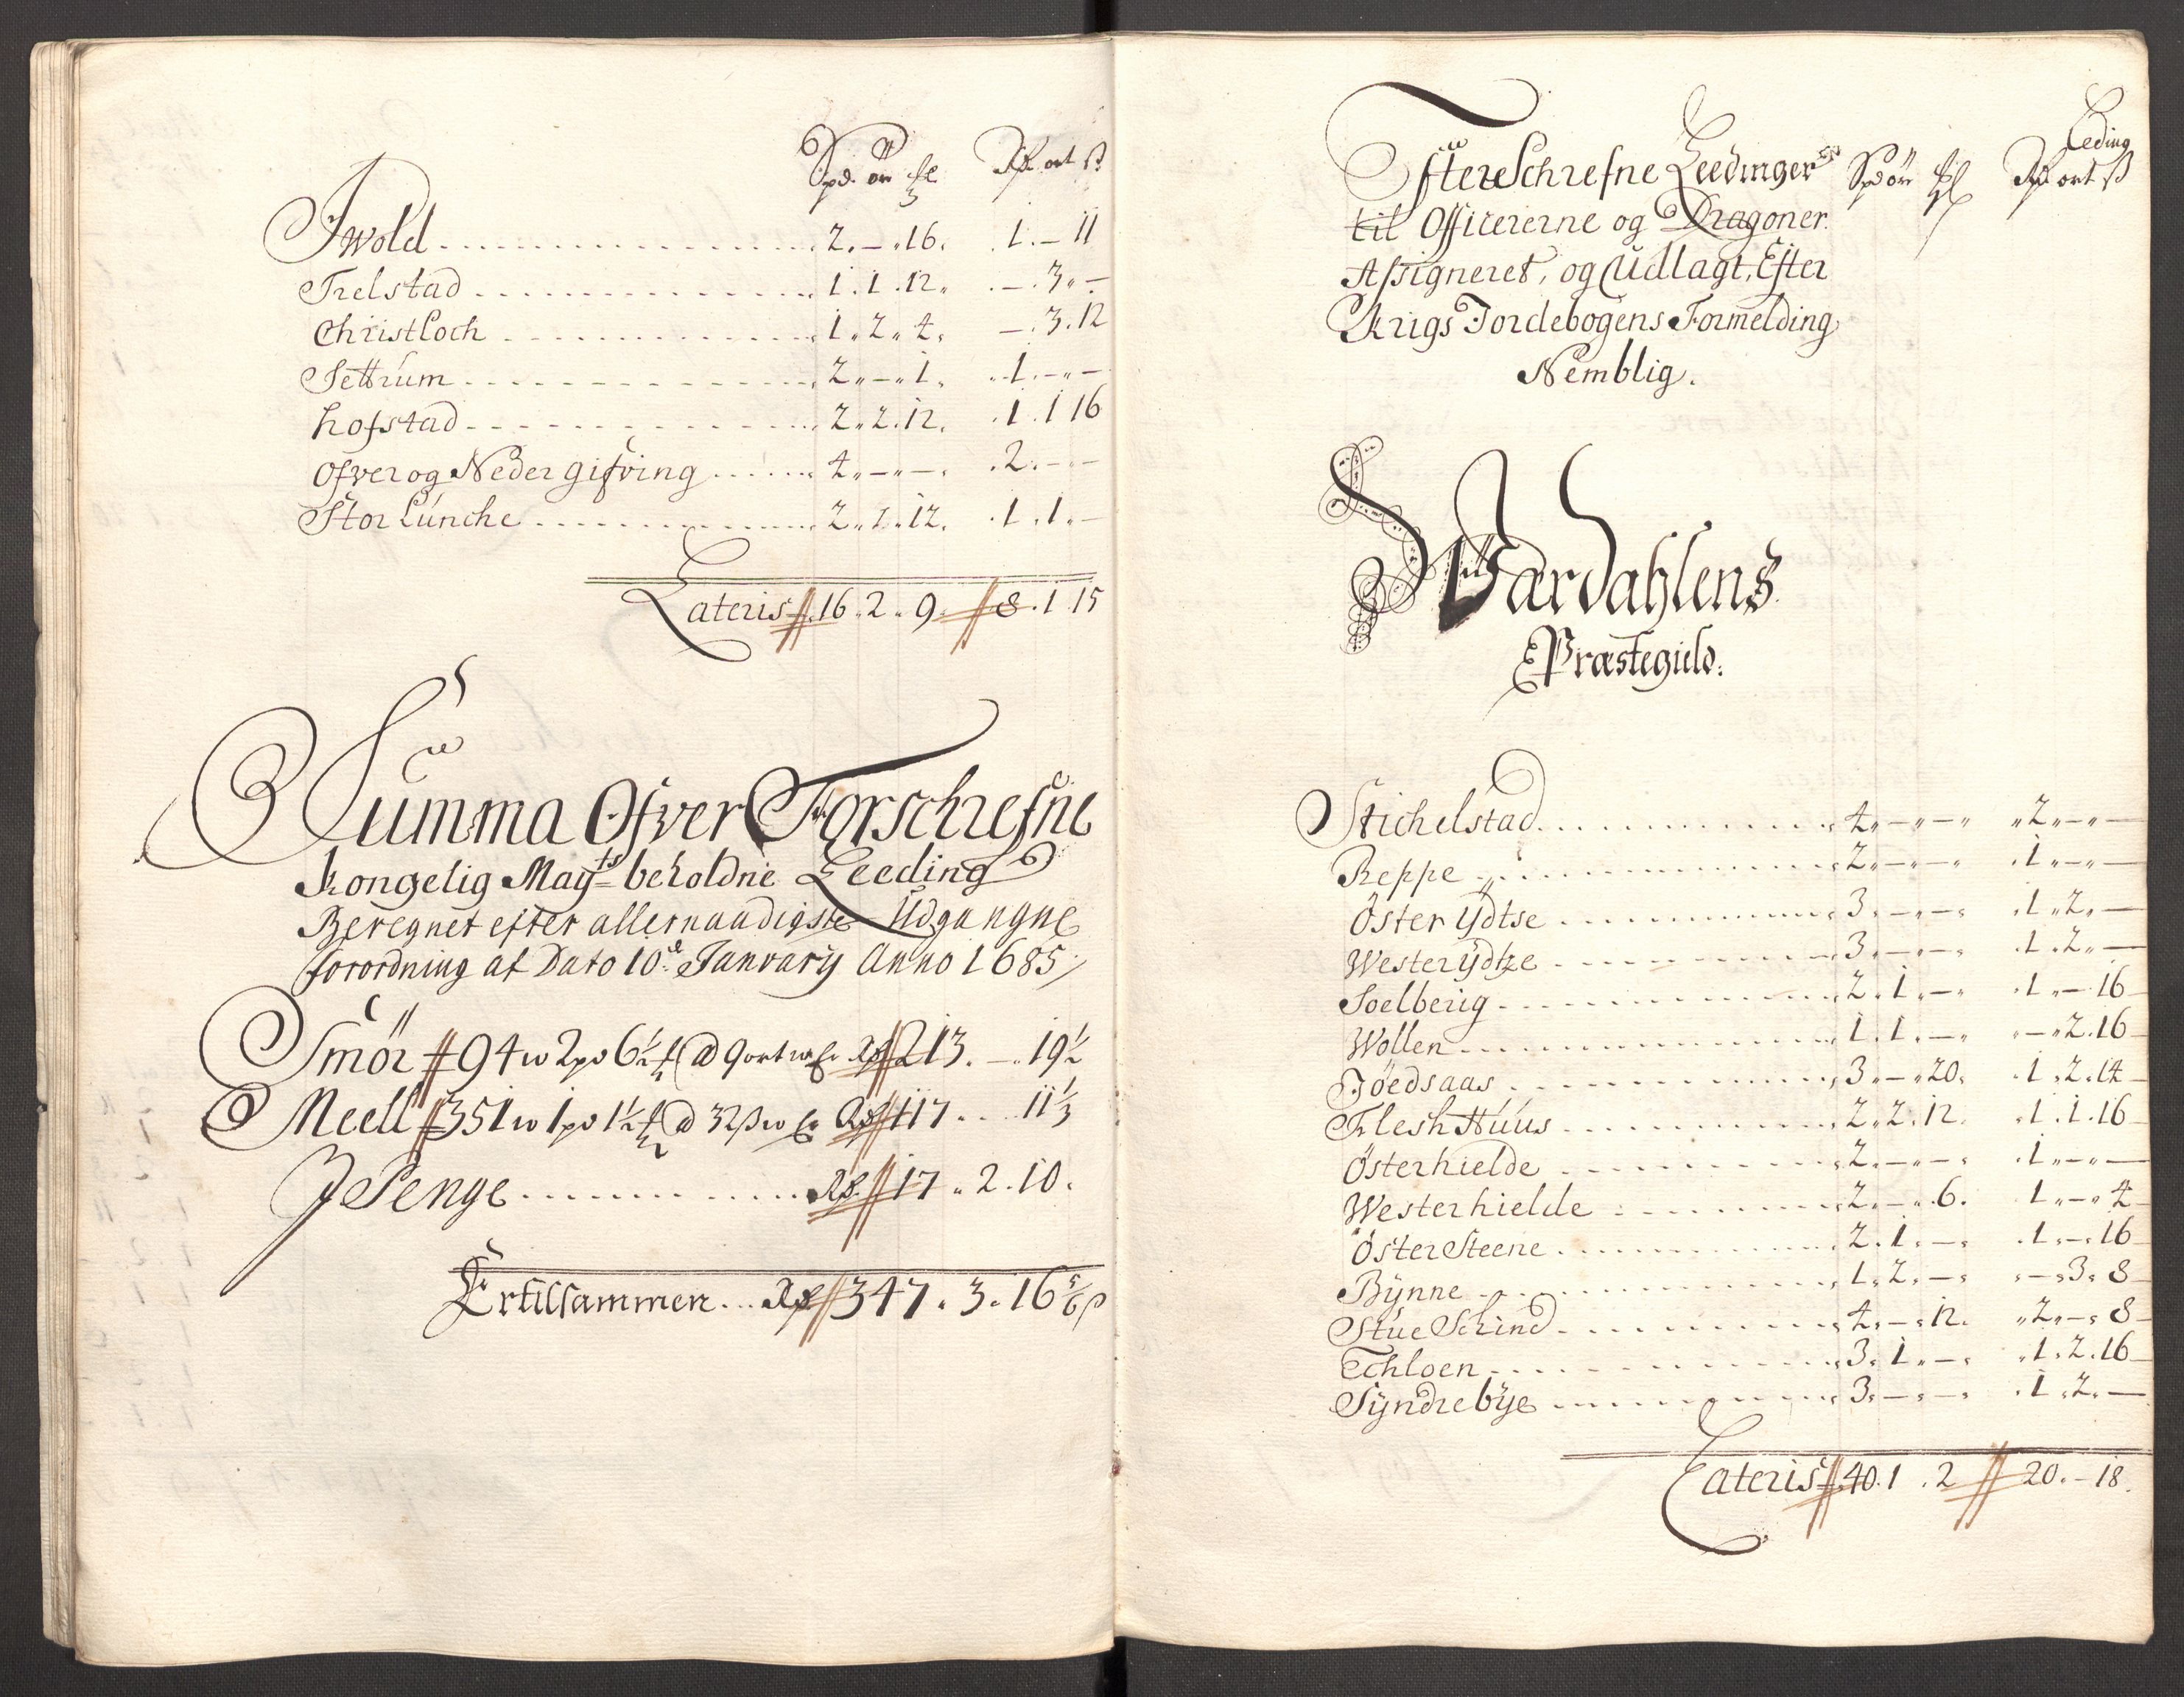 Spd. ör ℔ Rdr ort ß
Iwold 2 . – . 16 . 1 . – 11
Trelstad 1 . 1 . 12 . – . 3 . –
Christloch 1 . 2 . 4 . – . 3 . 12
Settrum 2 . – . 1 . 1 . – . –
hofstad 2 . 2 . 12 . 1 . 1 16
Ofver og Neder gifving 4 . – . – . 2 . – . –
Stor Lunche 2 . 2 . 12 . 1 . 1 . –
Lateris 16 . 2 . 9 . 8 . 1 15
Summa Ofver Forschrefne
Kongelig Mayts beholdne Leeding
Beregnet efter allernaadigste Udgangne
forordning af Dato 10de January Anno 1685
Smör 94 w 2 pd 6½ ℔ @ 9 ort w Er Rdr 213 . – . 19½
Meell 351 w 1 pd 1½ ℔ @ 32 ß w Er Rdr 117 . . 11⅓
I Penge Rdr 17 . 2 . 10 .
Er tilsammen Rdr 347 . 3 . 16⅚ ß
Leding
EfterSchrefne Leedinger Spd ör ℔ Rdr ort ß
til Officererne og Dragoner
Assigneret, og Udlagt, Efter
Krigs Jordebogens Formelding
Nemblig.
Wardahlens
Præstegield.
Stichelstad 4 . – . – . 2 . – . –
Reppe 2 . – . – . 1 . – . –
Öster ÿdtse 3 . – . – . 1 . 2 . –
Wester ÿdtze 3 . – . – . 1 . 2 . –
Soelberig 2 . 1 . – . 1 . – 16
Wollen 1 . 1 . – . – . 2 . 16
Jöedsaas 3 . – . 20 . 1 . 2 . 14
Flesk Huus 2 . 2 . 12 . 1 . 1 . 16
Österhielde 2 . – . – . 1 . – . –
Westerhielde 2 . – . 6 . 1 . – . 4
Öster Steene 2 . 1 . – . 1 . – . 16
Bÿnne 1 . 2 . – . – . 3 . 8
Stue Schind 4 . – . 12 . 2 . – . 8
Echloen 3 . 1 . – . 1 . 2 . 16
Sÿndre bÿe 3 . – . – . 1 . 2 . –
Lateris 40 . 1 . 2 20 . – 18 .